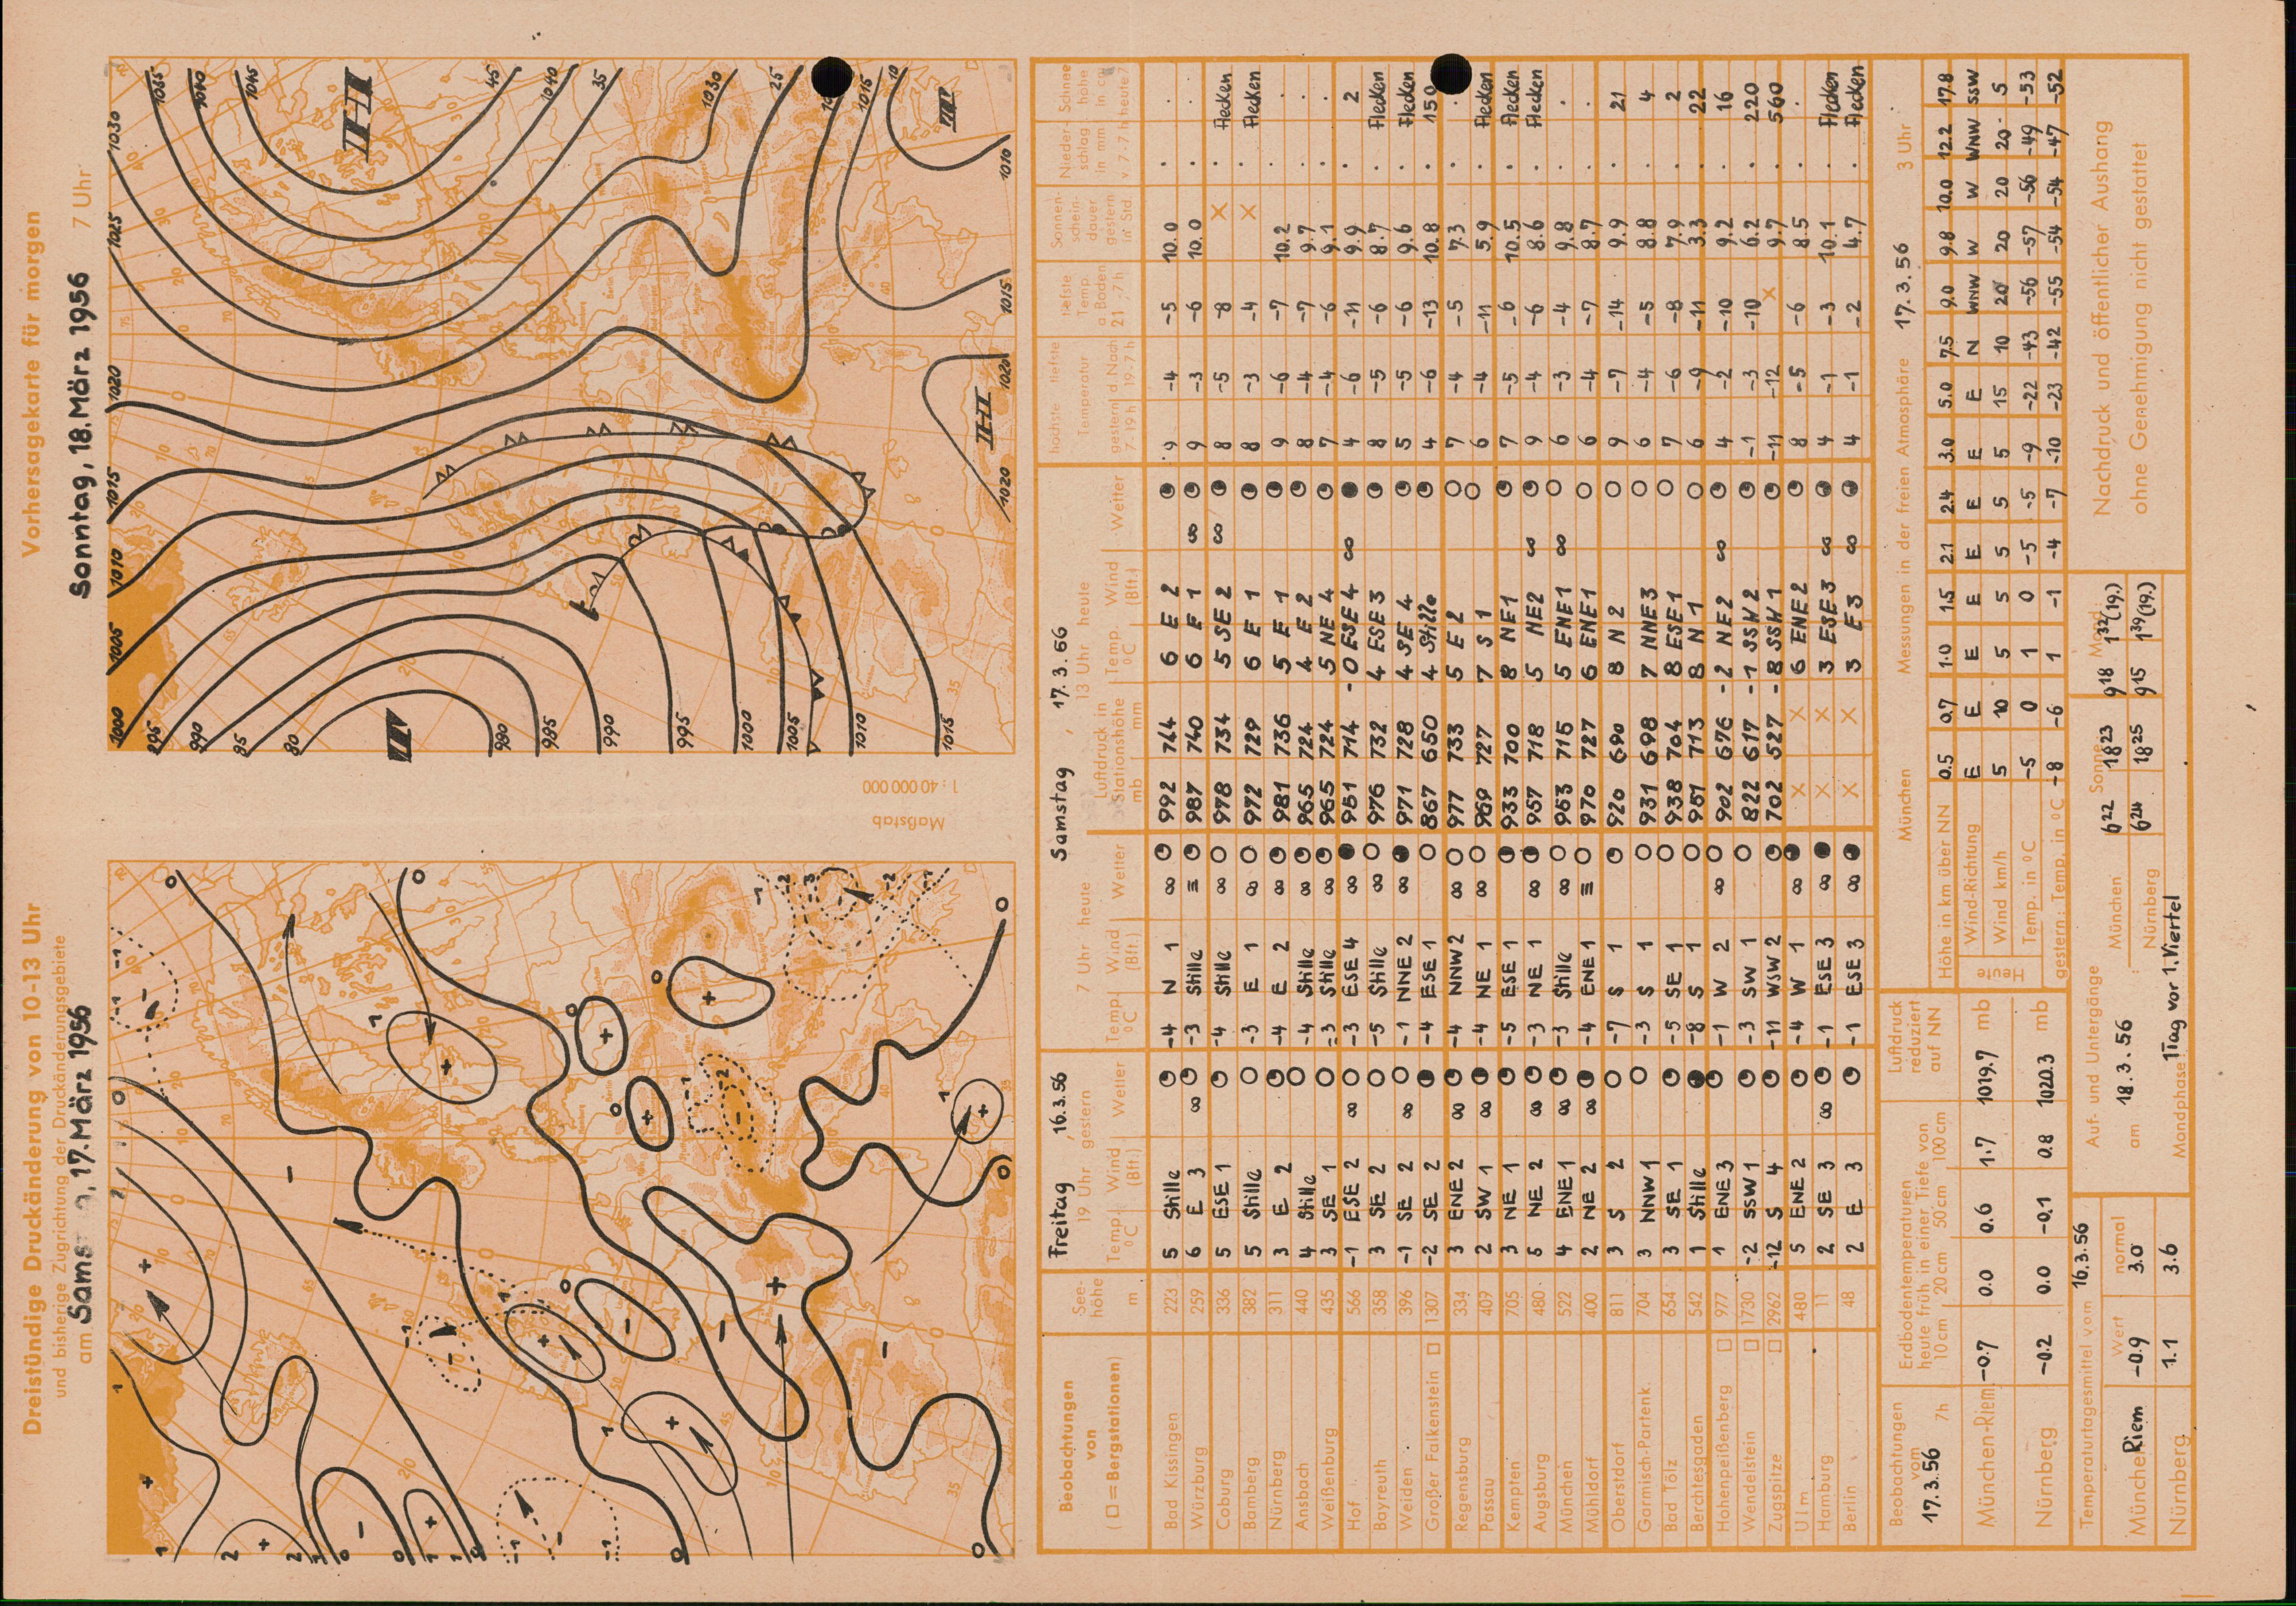 Dreistündige Druckänderung von 10-13 Uhr
und bisherige Zugrichtung der Druckänderungsgebiete
am Sams , 17. März 1956
Maßstab
1 : 40 000 000
Vorhersagekarte für morgen
Sonntag, 18. März 1956 7 Uhr
1000 1005 1010 1015 1020 1025 1030 1035 1040 1045
995 990 85 80
980 985 990 995 1000 1005 1010 1015
45 1040 35 1030 25 1015 10
1010 1015 1020 1020
T H H T
Beobachtungen von
(□ = Bergstationen)
See-höhe m
Freitag , 16.3.56
19 Uhr gestern
Temp. °C Wind (Bft.) Wetter
Samstag , 17.3.56
7 Uhr heute
Temp. °C Wind (Bft.) Wetter
Luftdruck in Stationshöhe mb mm
13 Uhr heute
Temp. °C Wind (Bft.) Wetter
höchste tiefste Temperatur gestern 7-19h d. Nacht 19-7h
tiefste Temp. a. Boden 21-7h
Sonnen-schein-dauer gestern in Std.
Nieder-schlag in mm v. 7-7h
Schnee höhe in cm heute 7
Bad Kissingen 223 5 Stille -4 N 1 ∞ 992 744 6 E 2 9 -4 -5 10.0 . .
Würzburg 259 6 E 3 ∞ -3 Stille ≡ 987 740 6 E 1 ∞ 9 -3 -6 10.0 . .
Coburg 336 5 ESE 1 -4 Stille ∞ 978 734 5 SE 2 ∞ 8 -5 -8 X . Flecken
Bamberg 382 5 Stille -3 E 1 ∞ 972 729 6 E 1 8 -3 -4 X . Flecken
Nürnberg 311 3 E 2 -4 E 2 ∞ 981 736 5 E 1 9 -6 -7 10.2 . .
Ansbach 440 4 Stille -4 Stille ∞ 965 724 4 E 2 8 -4 -7 9.7 . .
Weißenburg 435 3 SE 1 -3 Stille ∞ 965 724 5 NE 4 7 -4 -6 9.1 . .
Hof 566 -1 ESE 2 ∞ -3 ESE 4 ∞ 951 714 -0 ESE 4 ∞ 4 -6 -11 9.9 . 2
Bayreuth 358 3 SE 2 -5 Stille ∞ 976 732 4 ESE 3 8 -5 -6 8.7 . Flecken
Weiden 396 -1 SE 2 ∞ -1 NNE 2 ∞ 971 728 4 SE 4 5 -5 -6 9.6 . Flecken
Großer Falkenstein □ 1307 -2 SE 2 -4 ESE 1 867 650 4 Stille 4 -6 -13 10.8 . 150
Regensburg 334 3 ENE 2 ∞ -4 NNW 2 ∞ 977 733 5 E 2 7 -4 -5 7.3 . .
Passau 409 2 SW 1 ∞ -4 NE 1 ∞ 969 727 7 S 1 6 -4 -11 5.9 . Flecken
Kempten 705 3 NE 1 -5 ESE 1 933 700 8 NE 1 7 -5 -6 10.5 . Flecken
Augsburg 480 5 NE 2 ∞ -3 NE 1 ∞ 957 718 5 NE 2 ∞ 9 -4 -6 8.6 . Flecken
München 522 4 ENE 1 ∞ -3 Stille ∞ 953 715 5 ENE 1 ∞ 6 -3 -4 9.8 . .
Mühldorf 400 2 NE 2 ∞ -4 ENE 1 ≡ 970 727 6 ENE 1 6 -4 -7 8.7 . .
Oberstdorf 811 3 S 2 -7 S 1 920 690 8 N 2 9 -7 -14 9.9 . 21
Garmisch-Partenk. 704 3 NNW 1 -3 S 1 931 698 7 NNE 3 6 -4 -5 8.8 . 4
Bad Tölz 654 3 SE 1 -5 SE 1 938 704 8 ESE 1 7 -6 -8 7.9 . 2
Berchtesgaden 542 1 Stille -8 S 1 951 713 8 N 1 6 -9 -11 3.3 . 22
Hohenpeißenberg □ 977 1 ENE 3 -1 W 2 ∞ 902 676 -2 NE 2 ∞ 4 -2 -10 9.2 . 16
Wendelstein □ 1730 -2 SSW 1 -3 SW 1 822 617 -1 SSW 2 -1 -3 -10 6.2 . 220
Zugspitze □ 2962 -12 S 4 -11 WSW 2 702 527 -8 SSW 1 -11 -12 X 9.7 . 560
Ulm 480 5 ENE 2 -4 W 1 ∞ X X 6 ENE 2 8 -5 -6 8.5 . .
Hamburg 11 2 SE 3 ∞ -1 ESE 3 ∞ X X 3 ESE 3 ∞ 4 -1 -3 10.1 . Flecken
Berlin 48 2 E 3 -1 ESE 3 ∞ X X 3 E 3 ∞ 4 -1 -2 4.7 . Flecken
Beobachtungen vom 17.3.56 7h
Erdbodentemperaturen heute früh in einer Tiefe von
10 cm 20 cm 50 cm 100 cm
Luftdruck reduziert auf NN
München-Riem -0.7 0.0 0.6 1.7 1019.7 mb
Nürnberg -0.2 0.0 -0.1 0.8 1020.3 mb
Temperaturtagesmittel von 16.3.56
Wert normal
München Riem -0.9 3.0
Nürnberg 1.1 3.6
München Messungen in der freien Atmosphäre 17.3.56 3 Uhr
Höhe in km über NN 0.5 0.7 1.0 1.5 2.1 2.4 3.0 5.0 7.5 9.0 9.8 10.0 12.2 17.8
Heute
Wind-Richtung E E E E E E E E N WNW W W WNW SSW
Wind km/h 5 10 5 5 5 5 5 15 10 20 20 20 20 5
Temp. in °C -5 0 1 0 -5 -5 -9 -22 -43 -56 -57 -56 -49 -53
gestern: Temp. in °C -8 -6 1 -1 -4 -7 -10 -23 -42 -55 -54 -54 -47 -52
Auf- und Untergänge Sonne Mond
am 18.3.56
München 6 22 18 23 9 18 1 32 (19.)
Nürnberg 6 24 18 25 9 15 1 39 (19.)
Mondphase 1 Tag vor 1. Viertel
Nachdruck und öffentlicher Aushang
ohne Genehmigung nicht gestattet